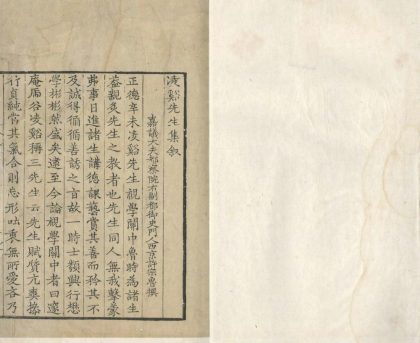 淩谿先生集叙
嘉議大夫都察院右副都御史門人西京許宗魯撰
正德辛未淩谿先生視學關中魯時為諸生
蓋觀炙先生之教者也先生同人無我擊蒙
弗事日進諸生講德課藝賞其善而矜其不
及誠得循循善誘之旨故一時士類興行懋
學彬彬然盛矣逮至今論視學關中者曰邃
庵虎谷淩谿稱三先生云先生賦質亢爽操
行貞純當其氣合則忘形吐衷無所愛吝乃